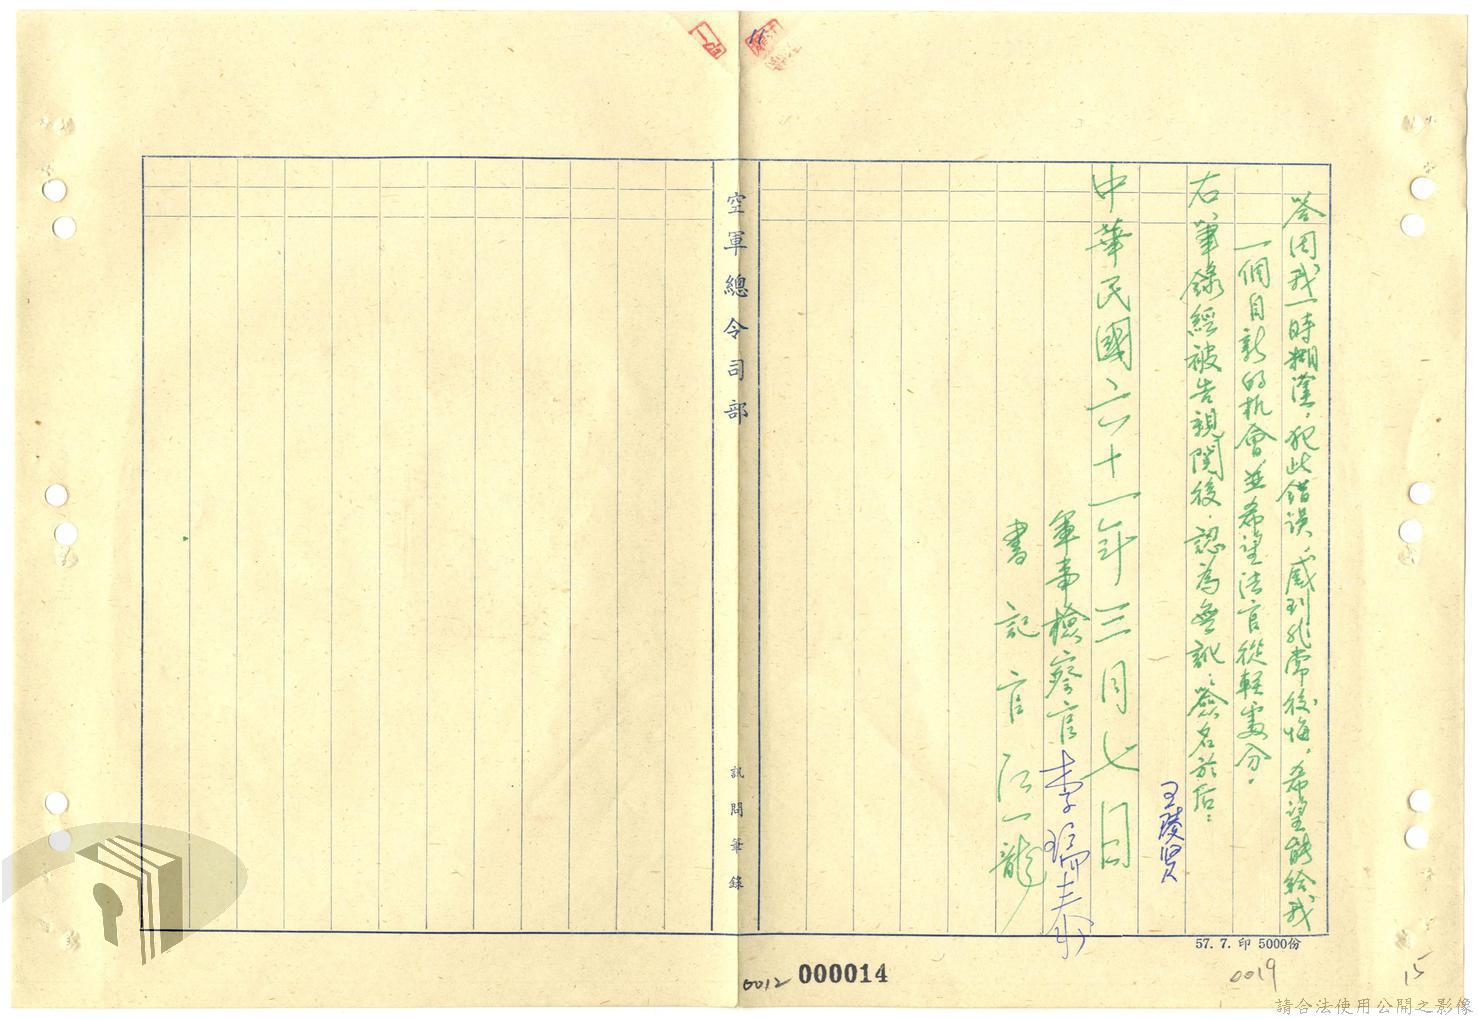 答因我一時糊塗，犯此錯誤，感到非常後悔，希望能給我
一個自新的机會並希望法官從輕處分。
右筆錄經被告親閱後，認為無訛，簽名於后：
王陵賢
中華民國六十一年三月七日
軍事檢察官李瑞泰
書記官江一龍
空軍總令司部
訊問筆錄
57. 7. 印 5000份
0012 000014
0019
15
請合法使用公開之影像